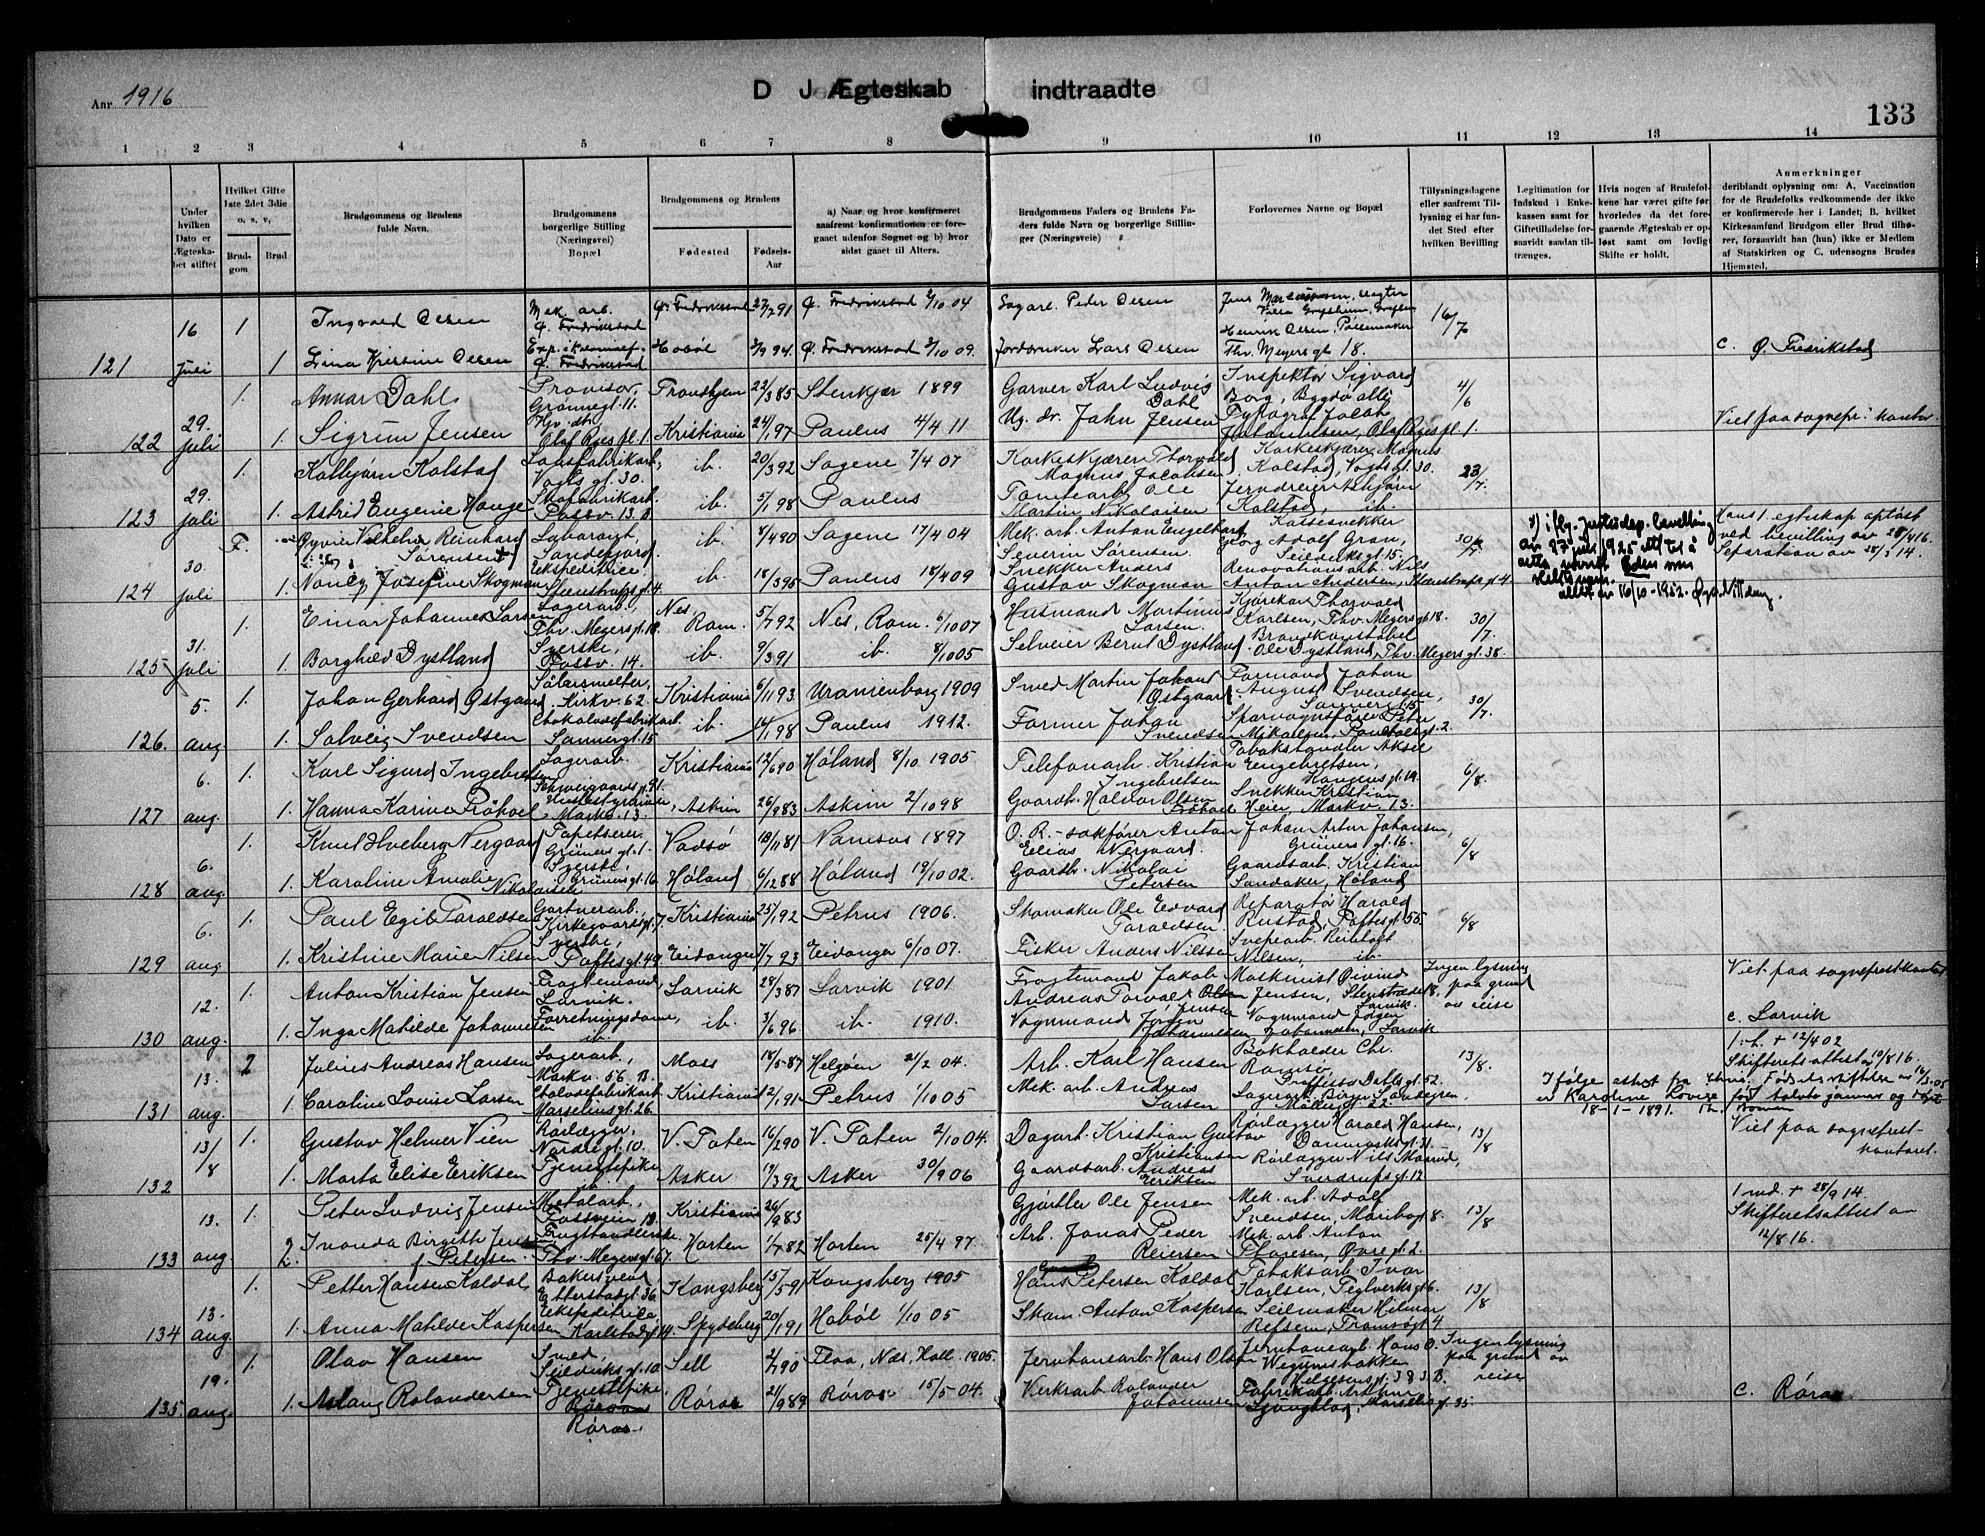 Aar 1916
D J Ægteskab indtraadte
133
1 2 3 4 5 6 7 8 9 10 11 12 13 14
Under hvilken Dato er Ægteskabet stiftet
Hvilket Gifte 1ste 2det 3die o. s. v,
Brudgom
Brud
Brudgommens og Brudens fulde Navn.
Brudgommens borgerlige Stilling (Næringsvei) Bopæl
Brudgommens og Brudens
Fødested
Fødsels-Aar
a) Naar og hvor konfirmeret saafremt konfirmationen er foregaaet udenfor Sognet og b) hvor sidst gaaet til Alters.
Brudgommens Faders og Brudens Faders fulde Navn og borgerlige Stillinger (Næringsveie)
Forlovernes Navne og Bopæl
Tillysningsdagene eller saafremt Tillysning ei har fundet Sted efter hvilken Bevilling
Legitimation for Indskud i Enkekassen samt for Giftetilladelse forsaavidt saadan tiltrænges.
Hvis nogen af Brudefolkene har været gifte før hvorledes da det foregaaende Ægteskab er opløst samt om lovligt Skifte er holdt.
Anmerkninger
deriblandt oplysning om: A. Vaccination for de Brudefolks vedkommende der ikke er konfirmerede her i Landet; B. hvilket Kirkesamfund Brudgom eller Brud tilhører, forsaavidt han (hun) ikke er Medlem af Statskirken og C. udensogns Brudes Hjemsted.
16 1 Ingvald Olsen Mek. arb. Ø. Fredrikstad Ø. Fredrikstad 27/7 91 Ø. Fredrikstad 2/10 04 Sagarb. Peder Olsen 16/7
121 juli 1 Lina Kristine Olsen Ø. Fredrikstad Hobøl 3/9 94. Ø. Fredrikstad 3/10 09. Jordbruker Lars Olsen Henrik Olsen, Pølsemaker Thv. Meyersgt. 18. c. Ø. Fredrikstad
1. Annar Dahl Provisor, Grønnegt. 11. Trondhjem 22/3 85 Stenkjær 1899 Garver Karl Ludvig Dahl Inspektør Sigvard Borg, Bygdø allé 4/6
122 29. juli 1. Sigrun Jensen Hjv. dtr. Olaf Ryes pl. 1. Kristiania 24/1 97 Paulus 4/4 11 Jahn Jensen Typograf Jacob Johannesen, Olaf Ryes pl. 1. Viet paa sognepr. kontor.
1. Kolbjørn Kolstad Vogts gt. 30. ib. 20/3 92 Sagene 7/4 07 Korkeskjærer Thorvald Magnus Jacobsen Korkeskjærer Magnus Kolstad, Vogts gt. 30. 23/7.
123 29. juli 1. Astrid Eugenie Hauge Skofabrikarb. Fossv. 13. B ib. 5/1 98 Paulus Tomtearb. Ole Martin Nikolaisen Jerndreier Asbjørn Kolstad, ib.
F. Øyvin Vilhelm Reinhard Sørensen Sandefjord ib. 8/4 90 Sagene 17/4 04 Mek. arb. Anton Engelhard Severin Sørensen Georg Adolf Gran, Seilduksgt. 15. 30/7 Hans 1. egteskap opløst ved bevilling av 28/4 16. Seperation av 28/3 14.
124 30. juli 1. Nancy Josefine Skogman Ekspeditrice Steenstrupsgt. 4. ib. 18/3 95 Paulus 18/4 09 Snekker Anders Gustav Skogman Renovationsarb. Nils Anton Andersen, Steenstrupsgt. 4
1. Einar Johannes Larsen Lagerarb., Thv. Meyersgt. 18. Nes Rom. 5/7 92 Nes, Rom. 6/10 07 Husmand Martinus Larsen. Kjørekar Thorvald Karlsen, Thv. Meyersgt. 18. 30/7.
125 31. juli 1 Borghild Dystland Syerske, Fossv. 14. ib. 9/3 91 ib. 8/10 05 Selveier Bernt Dystland Brandkonstabel Ole Dystland, Thv. Meyers gt. 38.
5. 1. Johan Gerhard Østgaard Kirkv. 62. Kristiania 6/11 93. Uranienborg 1909 Smed Martin Johans Østgaard Formand Johan August Svendsen, Sannergt. 15. 30/7.
126. aug. 1. Solveig Svendsen Chokoladefabrikarb. Sannergt. 15 ib. 16/1 98 Paulus 1912. Former Johan Svendsen Sporvognsfører Peter Mikaelsen,
6. 1. Karl Sigurd Ingebretsen Lagerarb. Schweigaardsgt. 91. Kristiania 12/6 90 Høland 8/10 1905 Telefonarb. Kristian Ingebretsen Tobakshandler Aksel Engebretsen, Kongensgt. 19. 6/8.
127 aug. 1. Hanna Karine Frøhoel Markv. 13. Askim 26/9 83 Askim 2/10 98 Gaardb. Halvor Olsen Snekker Kristian Heier, Markv. 13.
1. Knut Hveberg Nergaard Tapetserer, Grünersgt. 1. Vadsø 18/11 81 Namsos 1897 O. R. sakfører Anton Elias Nergaard. Johan Artur Johansen, Grüners gt. 16. 6/8
128 6. aug. 1. Karoline Amalie Nikolaisen Syerske, Grünersgt. 16 Høland 6/12 88 Høland 19/10 02. Gaardb. Nikolai Petersen Gaardsarb. Kristian Sandaker, Høland
1. Paul Egil Taraldsen Gartnerarb. Kirkegaardsgt. 7. Kristiania 25/1 92 Petrus 1906. Skomaker Ole Edvard Taraldsen. Reparatør Harald Rustad, Toftesgt. 55. 6/8
129 6. aug. 1. Kristine Marie Nilsen Syerske, Toftesgt. 49. Eidanger 7/7 93 Eidanger 6/10 07. Fisker Anders Nilssen Nilsen, ib.
12. 1. Anton Kristian Jensen Fragtemand, Larvik. Larvik 28/3 87 Larvik 1901 Fragtemand Jakob Andreas Torvald Olsen Jensen Maskinist Øivind Jensen, Larvik. Ingen lysning paa grund av reise Viet paa sognefrestkontoret
130 aug. 1. Inga Mathilde Johannesen Forretningsdame, ib. ib. 3/6 96 ib. 1910. Vognmand Jørgen Johannesen Vognmand Jørgen Johannesen, Larvik c. Larvik
13. 2 Julius Andreas Hansen Lagerarb., Markv. 56. B. Moss 18/5 87 Helgøen 21/2 04. Arb. Karl Hansen Bokholder Chr. Ramsø 13/8. 1. h. + 12/4 02 Skifteretsattest 10/8 16.
131 aug. 1 Caroline Lovise Larsen Marselisgt. 26. Kristiania 12/1 91 Petrus 1/10 05 Mek. arb. Andreas Larsen Møllergt. 22. Ifølge attest fra er Karoline Lovise født 18-1-1891.
1. Gustav Helmer Vien Rørlægger, Nordregt. 10. V. Toten 16/2 90 V. Toten 2/10 04. Dagarb. Kristian Gustav Kristiansen Rørlægger Harald Hansen, Danmarksgt. 31. 13/8 Viet paa sognefrestkontoret.
132 13/8 1. Marta Elise Eriksen Tjenestepike, ib. Asker 19/3 92 Asker 30/9 06 Gaardsarb. Andreas Eriksen Rørlægger Nils Sverdrupsgt. 12
13. 1. Peter Ludvig Jensen Metalarb., Fossveien 13. Kristiania 26/9 83 Gjørtler Ole Jensen Mek. arb. Adolf Svendsen, Maribogt. 8. 13/8 1 md. + 28/9 14. Skifteretsattest av 12/8 16.
133 aug 2. Ivanda Birgith Jensen f. Petersen Frugthandlerske, Thv. Meyersgt. 67. Horten 1/7 82 Horten 25/4 97. Arb. Jonas Peder Reiersen Mek. arb. Anton Thoresen, Øvregt. 2.
1. Petter Hansen Koldal Bakersvend Etterstadgt. 36. Kongsberg 15/5 91 Kongsberg 1905 Hans Petersen Koldal Tobaksarb. Ivar Karlsen, Teglverksgt. 6. 13/8
134 13. aug. 1. Anna Mathilde Kaspersen Ekspeditrice Karlstadgt. 14. Spydeberg 20/1 91 Hobøl 1/10 05 Skom. Anton Kaspersen Seilmaker Hilmar Refsem, Tromsøgt. 4
1. Olav Hansen Smed, Seilduksgt. 10 Sell 2/7 90 Flaa, Næs, Hall. 1905. Jernbanearb. Hans Olsen Jernbanearb. Hans O. Wegumsbakken Helgesensgt. 38 3. B. Ingen lysning paa grund av reise
135. 19. aug. 1. Aslaug Rolandersen Tjenestepike, Røros Røros 21/9 89 Røros 15/5 04. Verksarb. Rolander Johannesen Fabrikarb. Arthur Ljungblad, Marselisgt. 35. c. Røros